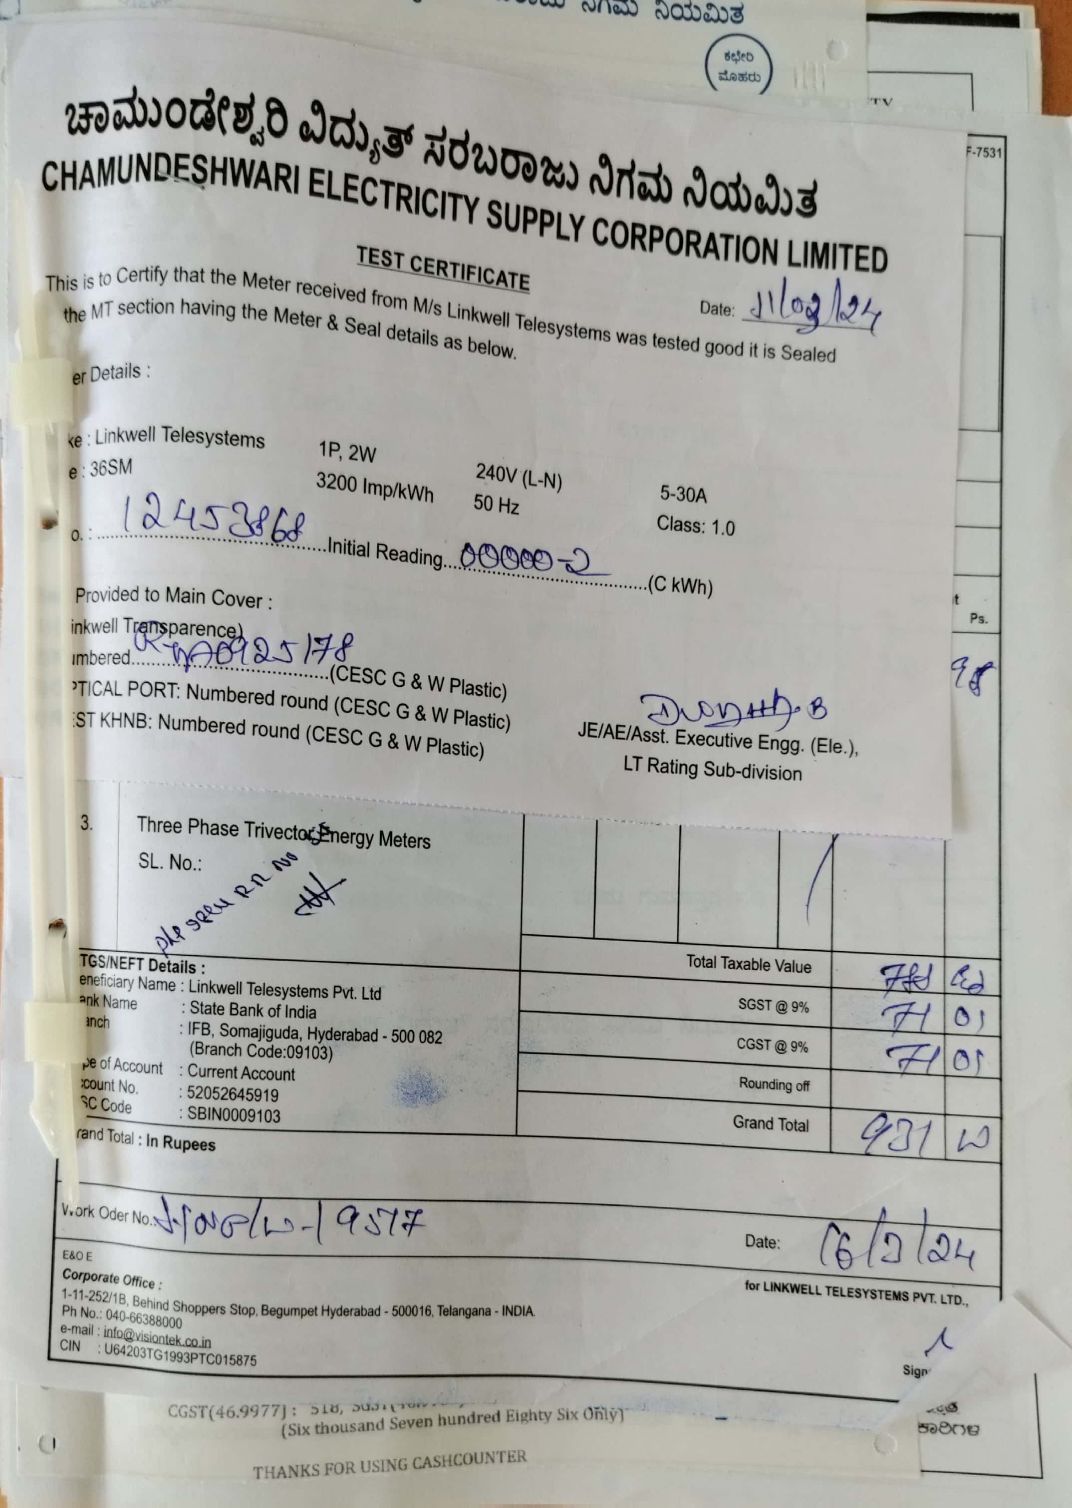 ನಿಗಮ ನಿಯಮಿತ
ಕಛೇರಿ
ಮೊಹರು
F-7531
ಚಾಮುಂಡೇಶ್ವರಿ ವಿದ್ಯುತ್ ಸರಬರಾಜು ನಿಗಮ ನಿಯಮಿತ
CHAMUNDESHWARI ELECTRICITY SUPPLY CORPORATION LIMITED
TEST CERTIFICATE
Date: 11/03/24
This is to Certify that the Meter received from M/s Linkwell Telesystems was tested good it is Sealed
the MT section having the Meter & Seal details as below.
er Details :
ke : Linkwell Telesystems 1P, 2W 240V (L-N) 5-30A
e : 36SM 3200 Imp/kWh 50 Hz Class: 1.0
o. : 12453868 Initial Reading 00000-2 (C kWh)
Provided to Main Cover :
inkwell Transparence)
umbered 0925178 (CESC G & W Plastic)
PTICAL PORT: Numbered round (CESC G & W Plastic)
ST KHNB: Numbered round (CESC G & W Plastic)
JE/AE/Asst. Executive Engg. (Ele.),
LT Rating Sub-division
t
Ps.
98
3. Three Phase Trivector Energy Meters
SL. No.:
RR No
TGS/NEFT Details :
eneficiary Name : Linkwell Telesystems Pvt. Ltd
ank Name : State Bank of India
anch : IFB, Somajiguda, Hyderabad - 500 082
(Branch Code:09103)
pe of Account : Current Account
count No. : 52052645919
SC Code : SBIN0009103
Total Taxable Value
SGST @ 9% 71 01
CGST @ 9% 71 01
Rounding off
Grand Total 931
rand Total : In Rupees
Work Oder No.: 9517
Date: 16/3/24
E&O E
for LINKWELL TELESYSTEMS PVT. LTD.,
Corporate Office :
1-11-252/1B, Behind Shoppers Stop, Begumpet Hyderabad - 500016, Telangana - INDIA.
Ph No.: 040-66388000
e-mail : info@visiontek.co.in
CIN : U64203TG1993PTC015875
Sign
CGST(46.9977) : 518,
(Six thousand Seven hundred Eighty Six Only)
THANKS FOR USING CASHCOUNTER